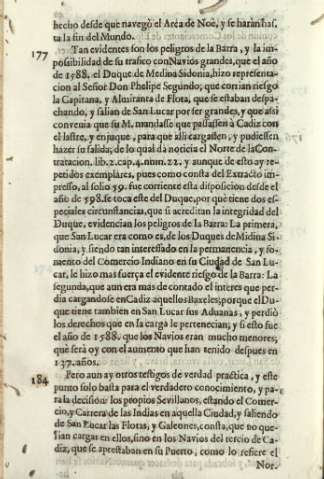 hecho desde que navegò el Arca de Noè, y se haràn has-
ta la fin del Mundo.
177 Tan evidentes son los peligros de la Barra, y la im-
possibilidad de su trafico con Navios grandes, que el año
de 1588. el Duque de Medina Sidonia, hizo representa-
cion al Señor Don Phelipe Segundo; que corrian riesgo
la Capitana, y Almiranta de Flota, que se estaban despa-
chando, y salian de San Lucar por ser grandes, y que assi
convenia que su M. mandasse que passassen à Cadiz con
el lastre, y enjuque, para que alli cargassen, y pudiessen
hazer su salida; de lo qual dà noticia el Norte de la Con-
tratacion. lib. 2. cap. 4. num. 22. y aunque de esto ay re-
petidos exemplares, pues como consta del Extracto im-
presso, al folio 59. fue corriente esta disposicion desde el
año de 598. se toca este del Duque, por què tiene dos es-
peciales circunstancias, que si acreditan la integridad del
Duque, evidencian los peligros de la Barra: La primera,
que San Lucar era como es, de los Duques de Medina Si-
donia, y siendo tan interessado en la permanencia, y fo-
mento del Comercio Indiano en su Ciudad de San Lu-
car, le hizo mas fuerça el evidente riesgo de la Barra: La
segunda, que aun era mas de contado el interès que per-
dia cargandose en Cadiz aquellos Baxeles; porque el Du-
que tiene tambien en San Lucar sus Aduanas, y perdiò
los derechos que en la carga le pertenecian; y si esto fue
el año de 1588. que los Navios eran mucho menores;
què serà oy con el aumento que han tenido despues en
137. años.
184 Pero aun ay otros testigos de verdad practica, y este
punto solo basta para el verdadero conocimiento, y pa-
ra la decision: los propios Sevillanos, estando el Comer-
cio, y Carrera de las Indias en aquella Ciudad, y saliendo
de San Lucar las Flotas, y Galeones, consta, que no que-
rian cargas en ellos, sino en los Navios del tercio de Ca-
diz, que se aprestaban en su Puerto, como lo refiere el
Nor-